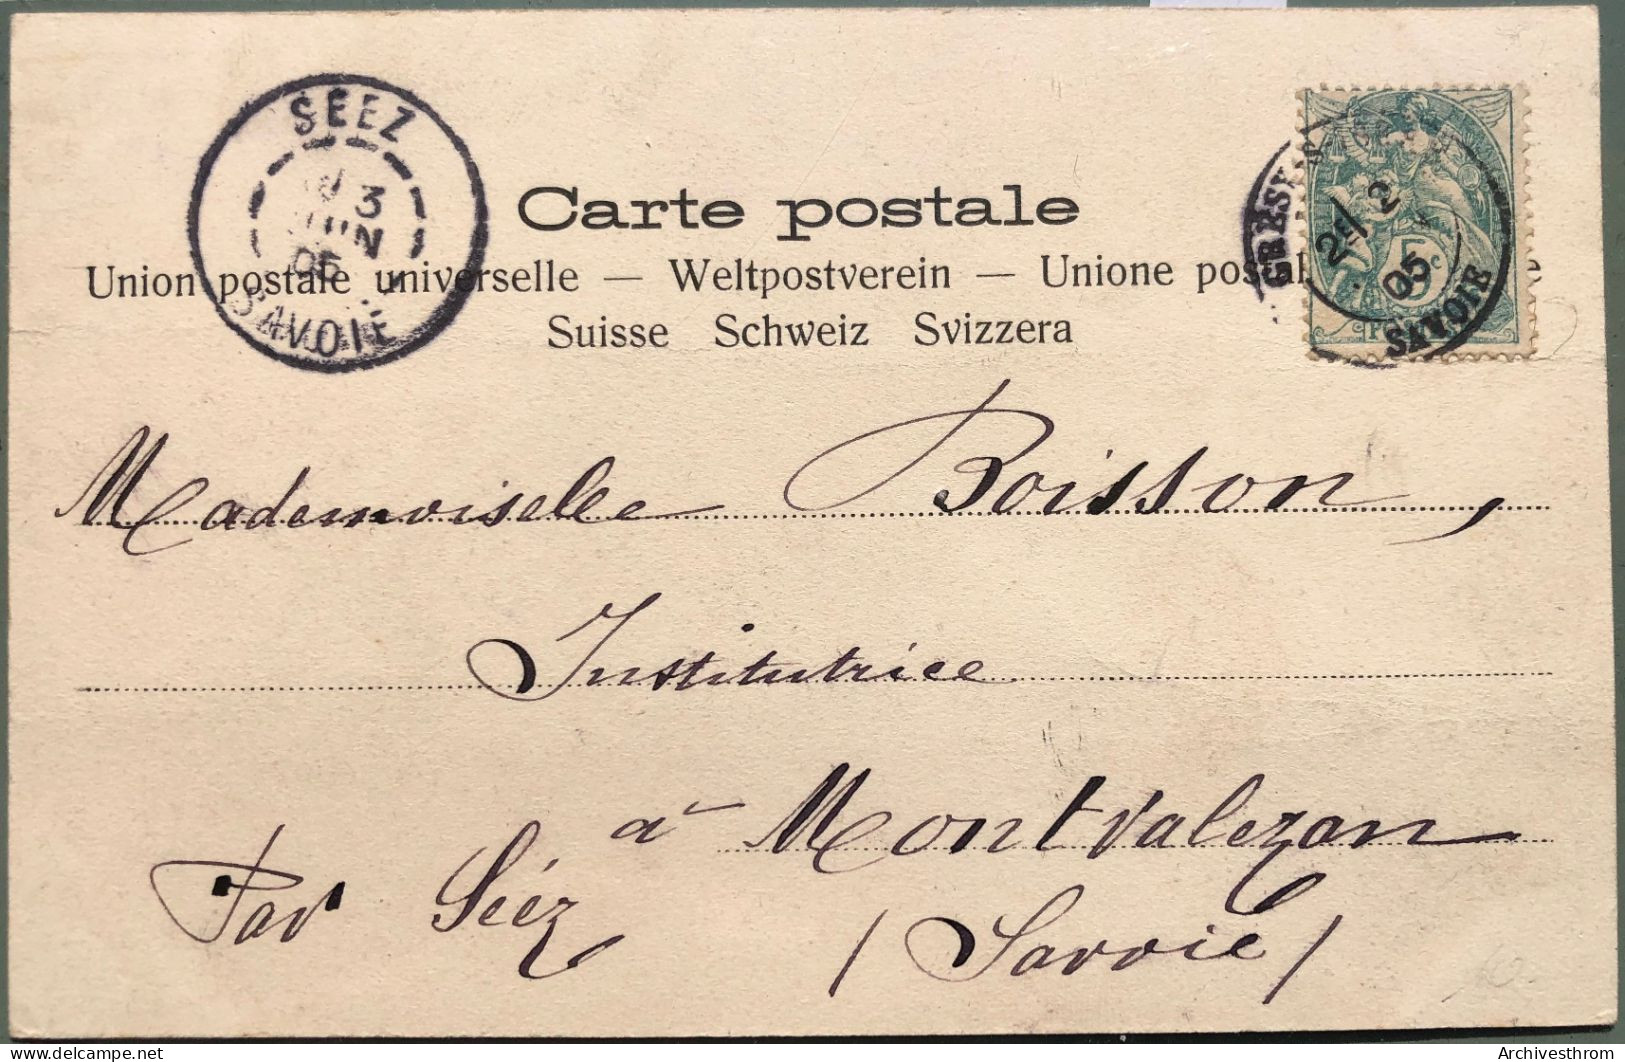 SÉEZ
3
JUIN
05
SAVOIE
GRÉSY-S
2E/ 2
05
SAVOIE
5c
Carte postale
Union postale universelle — Weltpostverein — Unione postal
Suisse Schweiz Svizzera
Mademoiselle Boisson,
Institutrice
à Montvalezan
Par Séez (Savoie)
delcampe.net
Archivesthrom